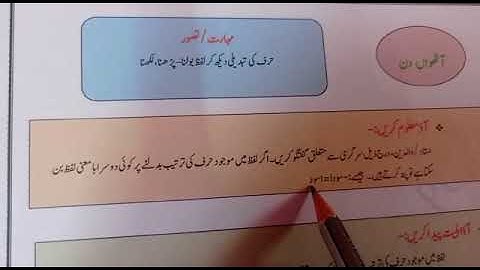 مہارت/تصور
حرف کی تبدیلی دیکھ کر لفظ بولنا-پڑھنا، لکھنا
آٹھواں دن
آؤ معلوم کریں:-
والدین، درج ذیل سرگرمی سے متعلق گفتگو کریں۔ اگر لفظ میں موجود حرف کی ترتیب بدلنے پر کوئی دوسرا با معنی لفظ بن
سکتا ہے تو پتہ کرتے ہیں۔ جیسے:-
لفظ میں موجود حرف کی